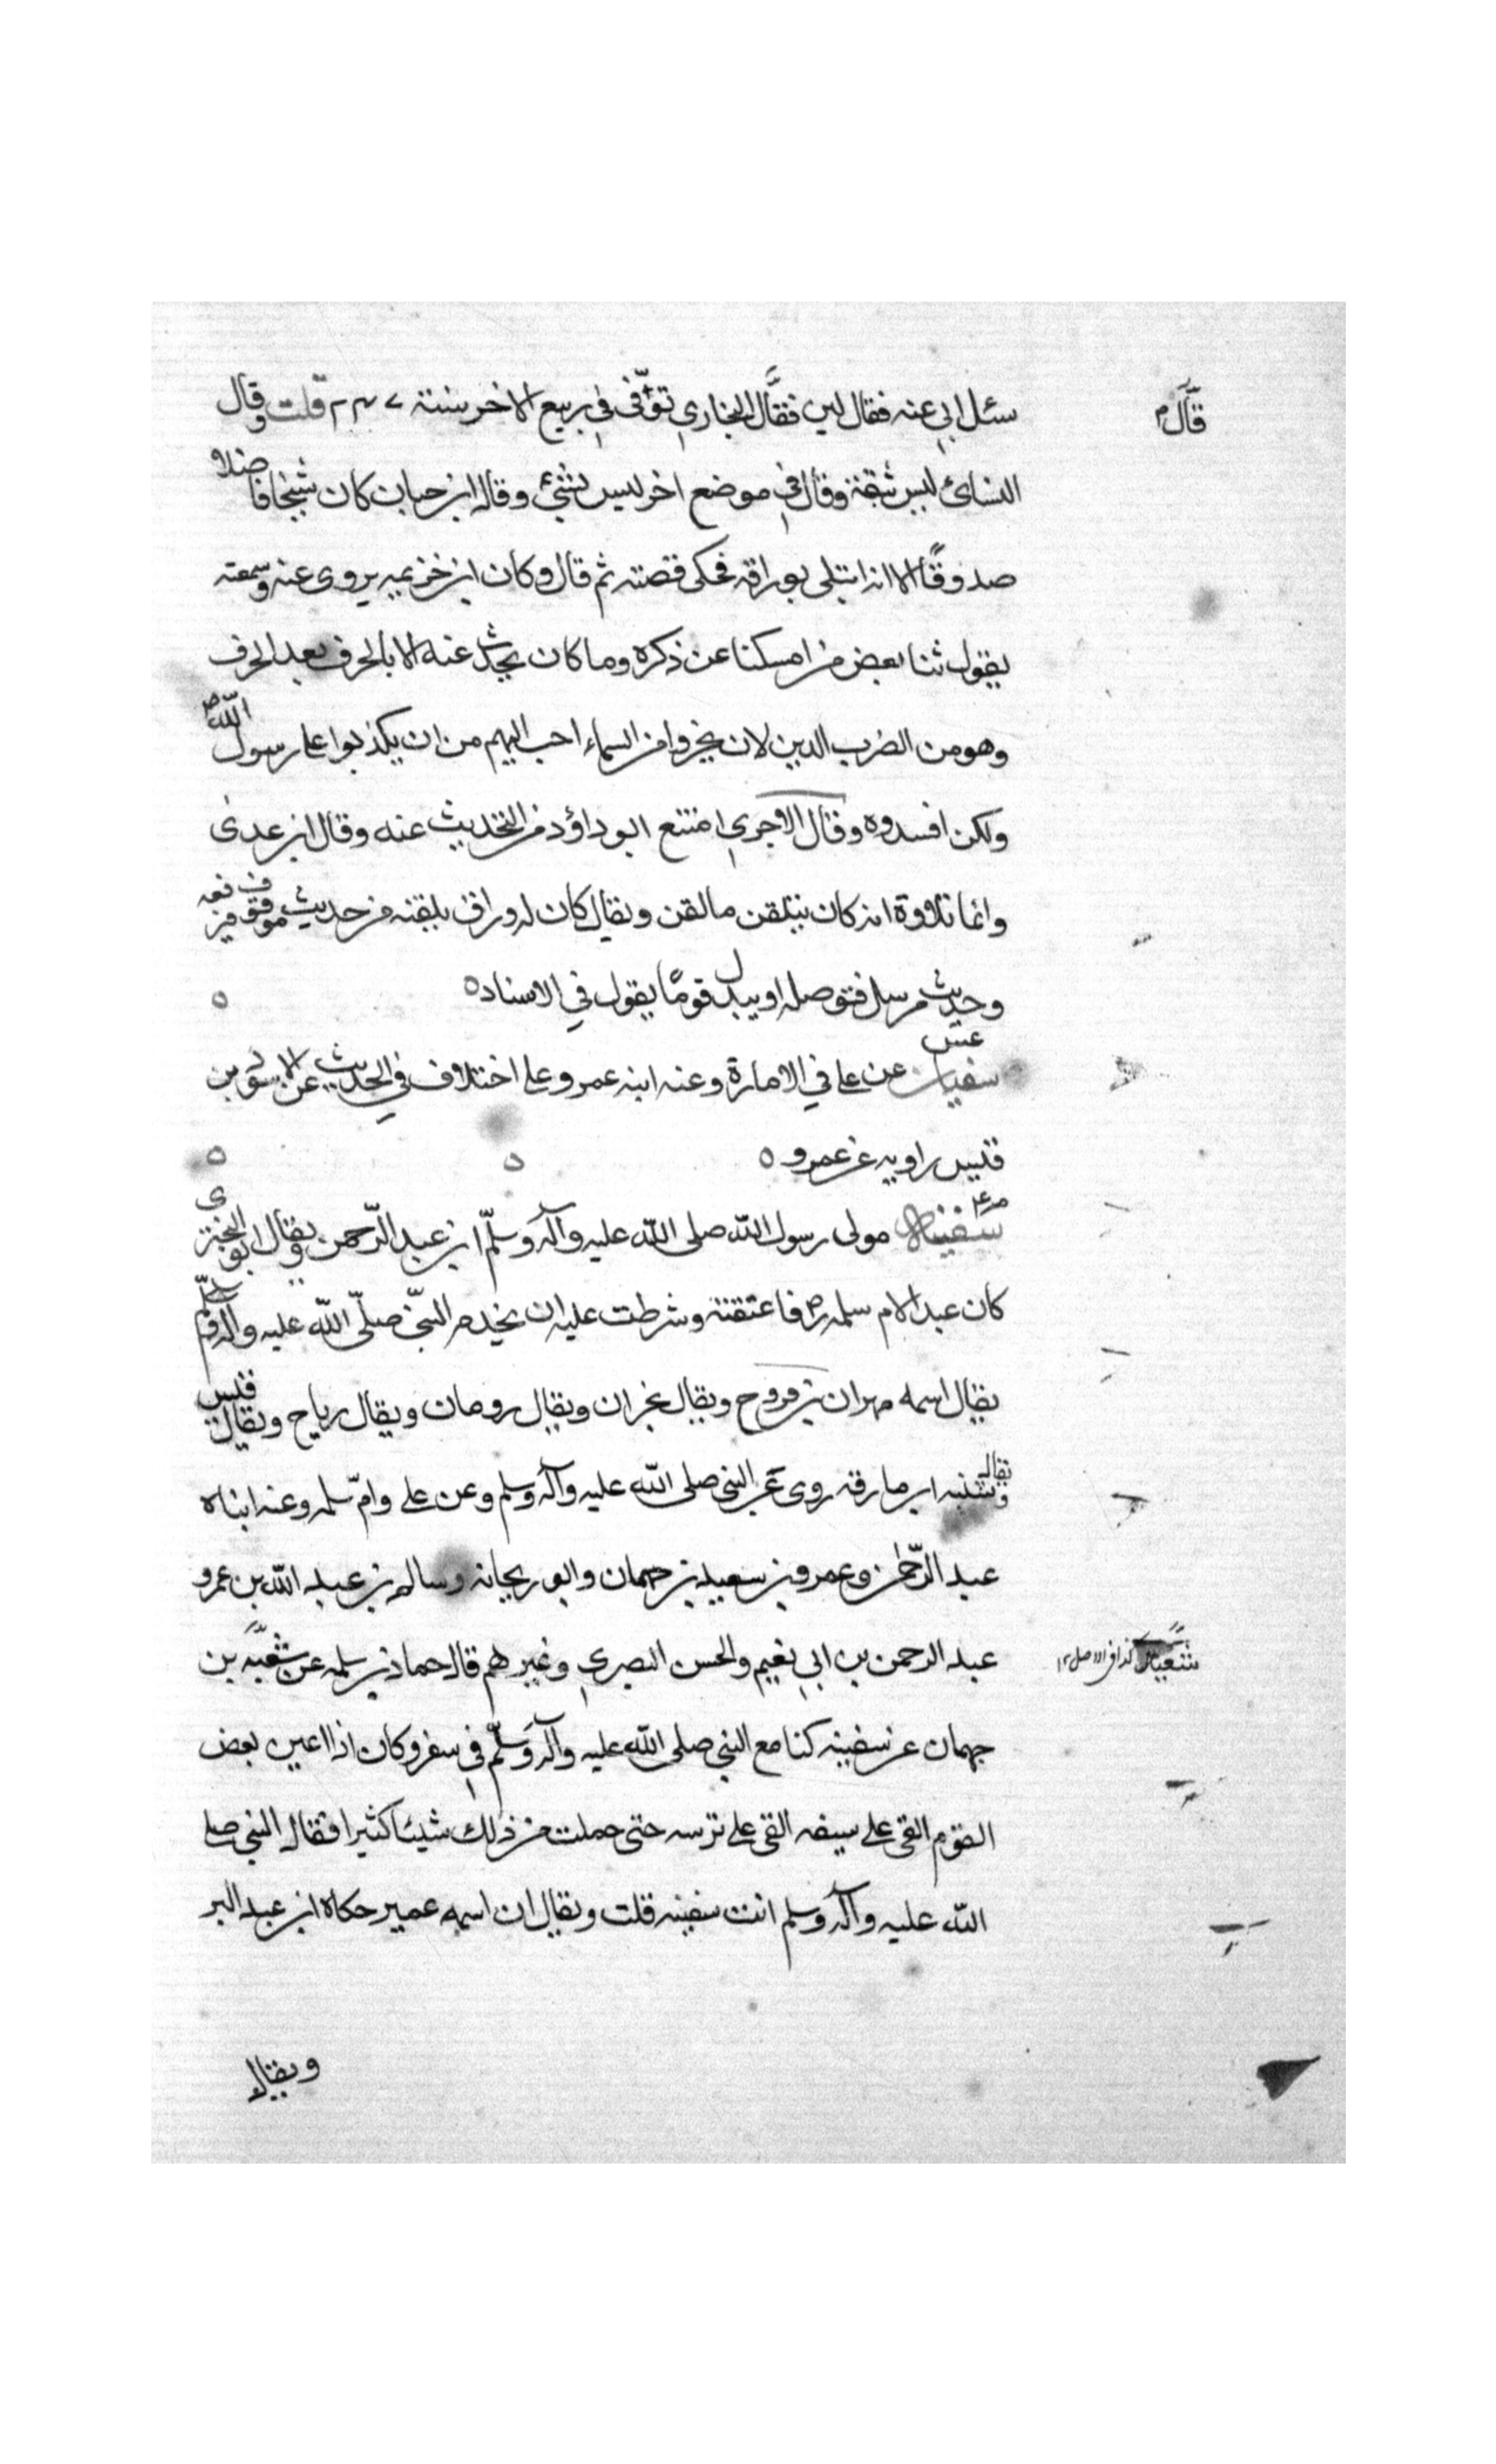 سئل ابي عنه فقال لين فقال البخاري توفي في ربيع الاخر سنة ٢٤٧ قلت وقال
قال م
النسائ ليس بثقة وقال في موضع اخر ليس بشيء وقال ابن حبان كان شيخا فاضلا
صدوقا الا انه ابتلى بوراقه فحكى قصته ثم قال وكان ابن خزيمه يروى عنه وسمعته
يقول ثنا بعض من امسكنا عن ذكره وما كان يحدث عنه الا بالحرف بعد الحرف
وهو من الضرب الذين لان يخروا من السماء احب اليهم من ان يكذبوا على رسول الله ص
ولكن افسدوه وقال الاجري امتنع ابو داؤد من التحديث عنه وقال ابن عدى
وانما تلاوة انه كان يتلقن ما لقن ويقال كان له وراق يلقنه من حديث موقوف
وحديث مرسل فتوصله او يبدل قوما يقول في الاسناد ٥
عس
سفيان عن علي في الامارة وعنه ابنه عمرو على اختلاف في الحديث عن الاسود بن
قيس راويه عن عمرو ٥
م ع
سفينة مولى رسول الله صلى الله عليه وآله وسلم ابن عبد الرحمن ويقال ابو البختري
كان عبدا لام سلمه رض فاعتقته وشرطت عليه ان يخدم النبي صلى الله عليه وآله وسلم
يقال اسمه مهران بن فروح ويقال نجران ويقال رومان ويقال رباح ويقال قيس
ويقال شنبه ابر مارقه روى عن النبي صلى الله عليه وآله وسلم وعن علي وام سلمه وعنه ابناه
عبد الرحمن وعمر وبن سعيد بن جمهان وابو ريحانه وسالم بن عبد الله بن عمرو
عبد الرحمن بن ابي نعيم والحسن البصري وغيرهم قال حماد بن سلمه عن شعبه بن
كذا في الاصل ١٢
جهمان عن سفينه كنا مع النبي صلى الله عليه وآله وسلم في سفر وكان اذا اعين بعض
القوم القى علي سيفه القى علي ترسه حتى حملت من ذلك شيئا كثيرا فقال النبي صلى
الله عليه وآله وسلم انت سفينه قلت ويقال ان اسمه عمير حكاه ابن عبد البر
ويقال